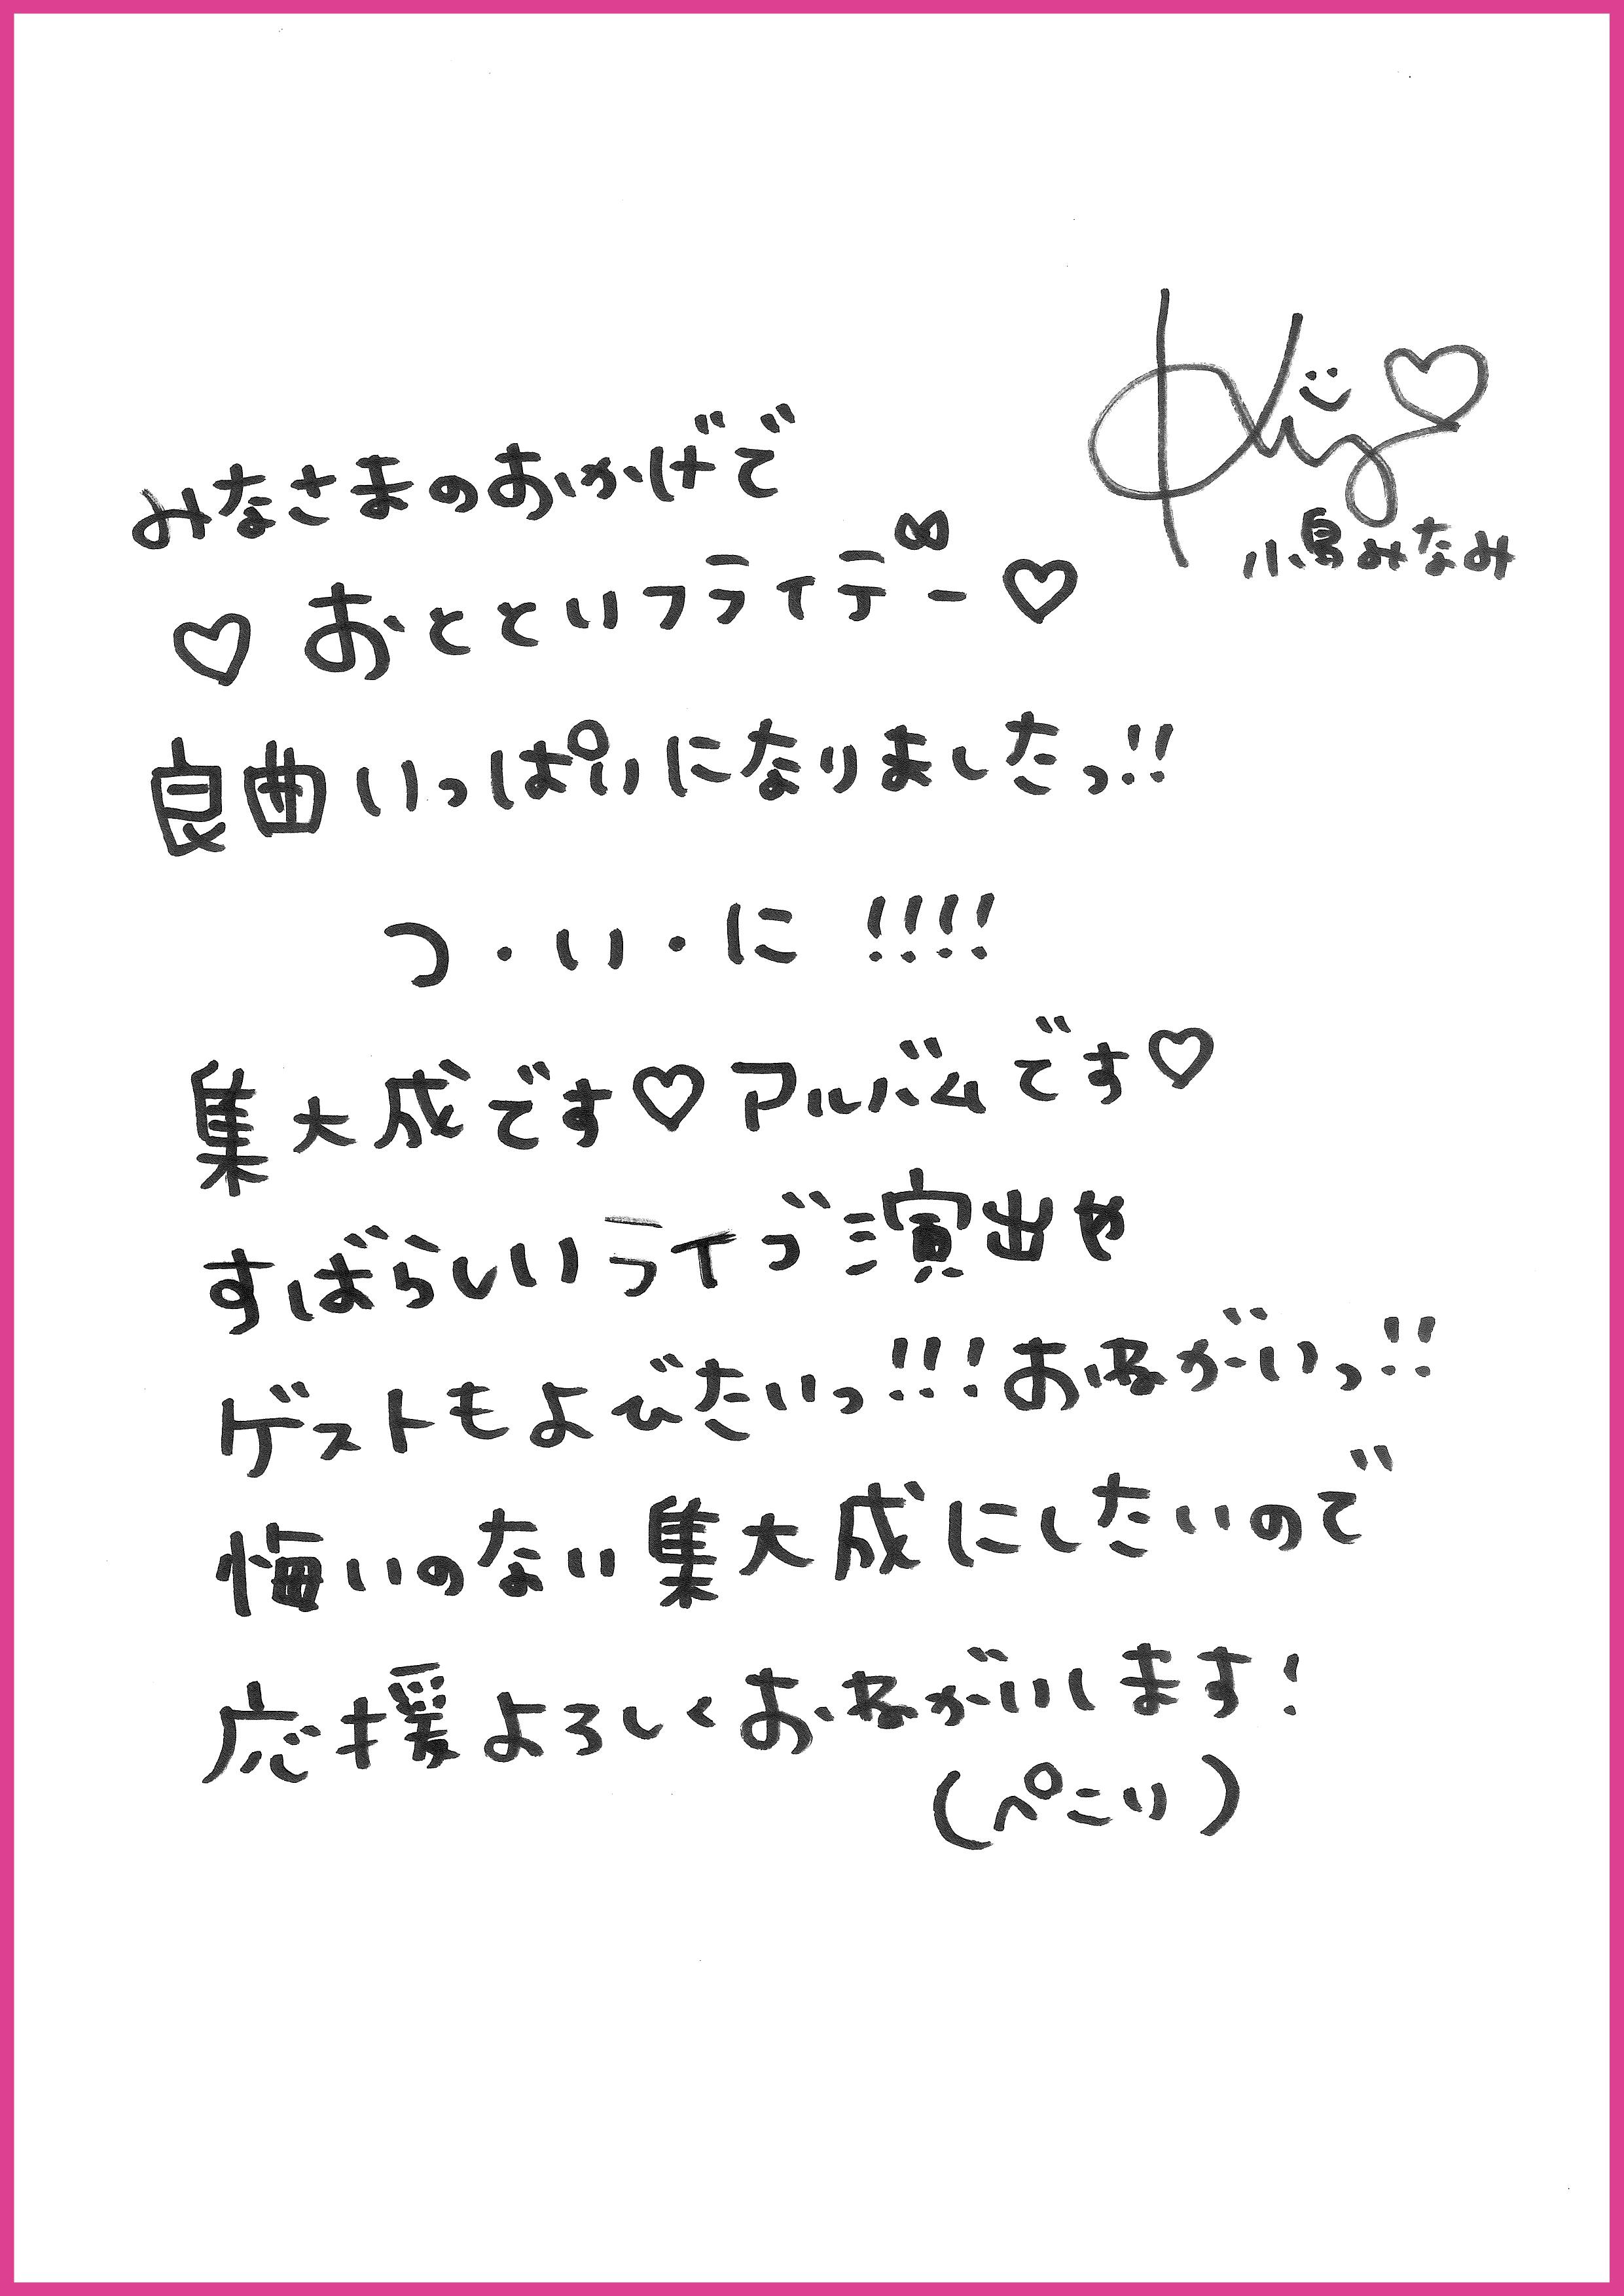 小島みなみ
みなさまのおかげで
♡ おとといフライデー♡
良曲いっぱいになりましたっ!!
つ・い・に !!!!
集大成です♡アルバムです♡
すばらしいライブ演出や
ゲストもよびたいっ!!!おねがいっ!!
悔いのない集大成にしたいので
応援よろしくおねがいします!
(ぺこり)